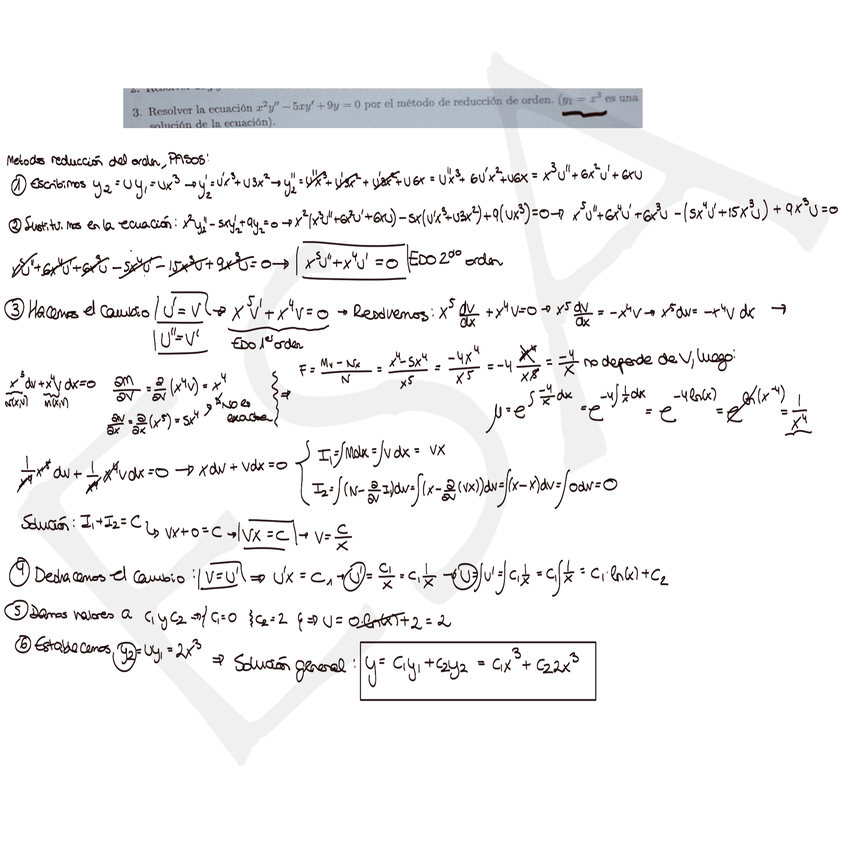 3. Resolver la ecuación x²y'' − 5xy' + 9y = 0 por el método de reducción de orden. (y₁ = x³ es una
solución de la ecuación).
Metodo reducción del orden, PASOS:
① Escribimos y₂ = Uy₁ = Ux³ → y₂' = U'x³ + U3x² → y₂'' = U''x³ + U'3x² + U'3x² + U6x = U''x³ + 6U'x² + U6x = x³U'' + 6x²U' + 6xU
② Sustituimos en la ecuación: x²y₂'' − 5xy₂' + 9y₂ = 0 → x²(x³U'' + 6x²U' + 6xU) − 5x(U'x³ + U3x²) + 9(Ux³) = 0 → x⁵U'' + 6x⁴U' + 6x³U − (5x⁴U' + 15x³U) + 9x³U = 0
x⁵U'' + 6x⁴U' + 6x³U − 5x⁴U' − 15x³U + 9x³U = 0 → x⁵U'' + x⁴U' = 0 EDO 2do orden
③ Hacemos el cambio U' = V → x⁵V' + x⁴V = 0 → Resolvemos: x⁵ dv/dx + x⁴V = 0 → x⁵ dv/dx = −x⁴V → x⁵dv = −x⁴V dx →
U'' = V' EDO 1er orden
x⁵dv + x⁴V dx = 0 ∂M/∂V = ∂/∂V (x⁴V) = x⁴ F = (Mv − Nx)/N = (x⁴ − 5x⁴)/x⁵ = −4x⁴/x⁵ = −4 x⁴/x⁵ = −4/x no depende de V, luego:
N(x,v) M(x,v) ∂N/∂x = ∂/∂x (x⁵) = 5x⁴ No es exacta ⇒ μ = e^∫−4/x dx = e^−4∫1/x dx = e^−4ln(x) = e^ln(x⁻⁴) = 1/x⁴
1/x⁴ x⁵ dv + 1/x⁴ x⁴V dx = 0 → x dv + Vdx = 0 I₁ = ∫Mdx = ∫V dx = VX
I₂ = ∫(N − ∂/∂V I₁)dv = ∫(x − ∂/∂V (vx))dv = ∫(x − x)dv = ∫0dv = 0
Solución: I₁ + I₂ = C → VX + 0 = C → VX = C → V = C/x
④ Deshacemos el cambio: V = U' ⇒ U'x = C₁ → U' = C₁/x = C₁ 1/x → U = ∫U' = ∫C₁ 1/x = C₁∫1/x = C₁·ln(x) + C₂
⑤ Damos valores a C₁ y C₂ ⇒ { C₁ = 0 } { C₂ = 2 } ⇒ U = 0·ln(x) + 2 = 2
⑥ Establecemos y₂ = Uy₁ = 2x³ ⇒ Solución general: y = C₁y₁ + C₂y₂ = C₁x³ + C₂2x³
ESA